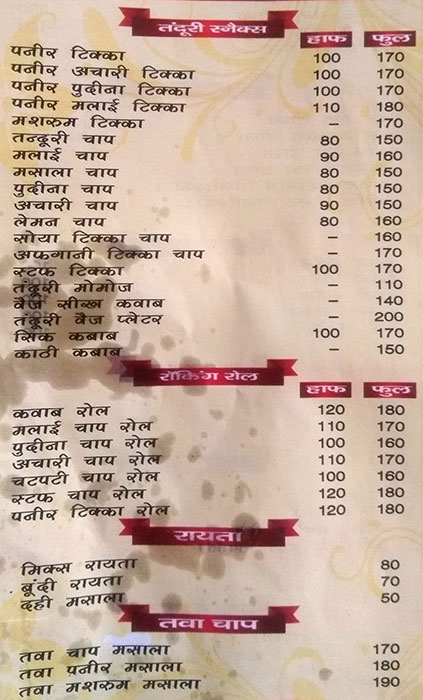 तंदूरी स्नैक्स
हाफ फुल
पनीर टिक्का 100 170
पनीर अचारी टिक्का 100 170
पनीर पुदीना टिक्का 100 170
पनीर मलाई टिक्का 110 180
मशरुम टिक्का – 170
तन्दूरी चाप 80 150
मलाई चाप 90 160
मसाला चाप 80 150
पुदीना चाप 80 150
अचारी चाप 90 150
लेमन चाप 80 160
सोया टिक्का चाप – 160
अफगानी टिक्का चाप – 170
स्टफ टिक्का 100 170
तंदूरी मोमोज – 110
वैज सीख कवाब – 140
तंदूरी वैज प्लेटर – 200
सिक कबाब 100 170
काठी कबाब – 150
रॉकिंग रोल
हाफ फुल
कवाब रोल 120 180
मलाई चाप रोल 110 170
पुदीना चाप रोल 100 160
अचारी चाप रोल 110 170
चटपटी चाप रोल 100 160
स्टफ चाप रोल 120 180
पनीर टिक्का रोल 120 180
रायता
मिक्स रायता 80
बूंदी रायता 70
दही मसाला 50
तवा चाप
तवा चाप मसाला 170
तवा पनीर मसाला 180
तवा मशरुम मसाला 190